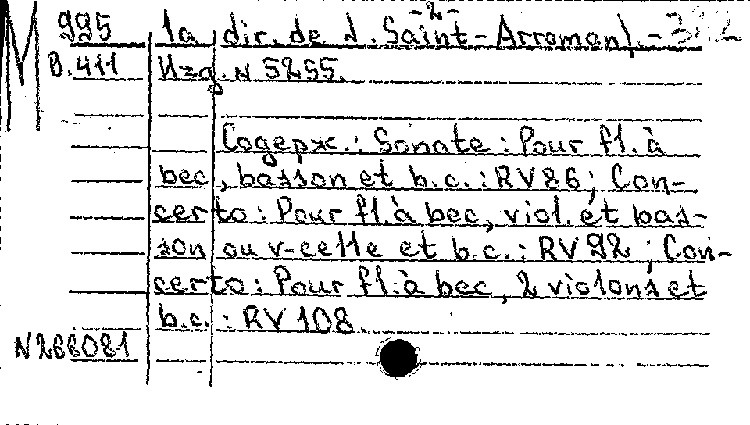 -2-
M 995 la dir. de J. Saint-Arroman/.-
D.411 Изд. N 5255.
Содерж.: Sonate: Pour fl. à
bec, basson et b.c.: RV 86; Con-
certo: Pour fl. à bec, viol. et bas-
son ou v-celle et b.c.: RV 92; Con-
certo: Pour fl. à bec, 2 violons et
b.c.: RV 108
N 268081